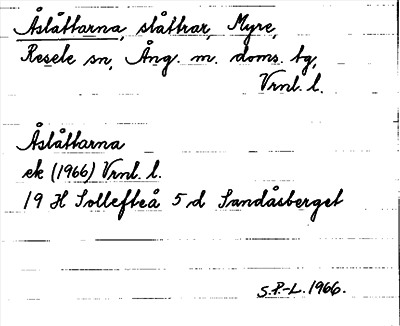 Åslåttarna, slåttrar, Myre,
Resele sn, Ång. m. doms. tg,
Vrnl. l.
Åslåttarna
ek (1966) Vrnl. l.
19 H Sollefteå 5 d Sandåsberget
S.P.-L. 1966.